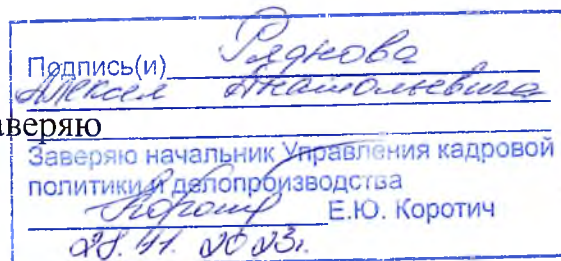 Подпись(и) Ряднова
Алексея Анатольевича
заверяю
Заверяю начальник Управления кадровой
политики и делопроизводства
Е.Ю. Коротич
28.11.2023г.